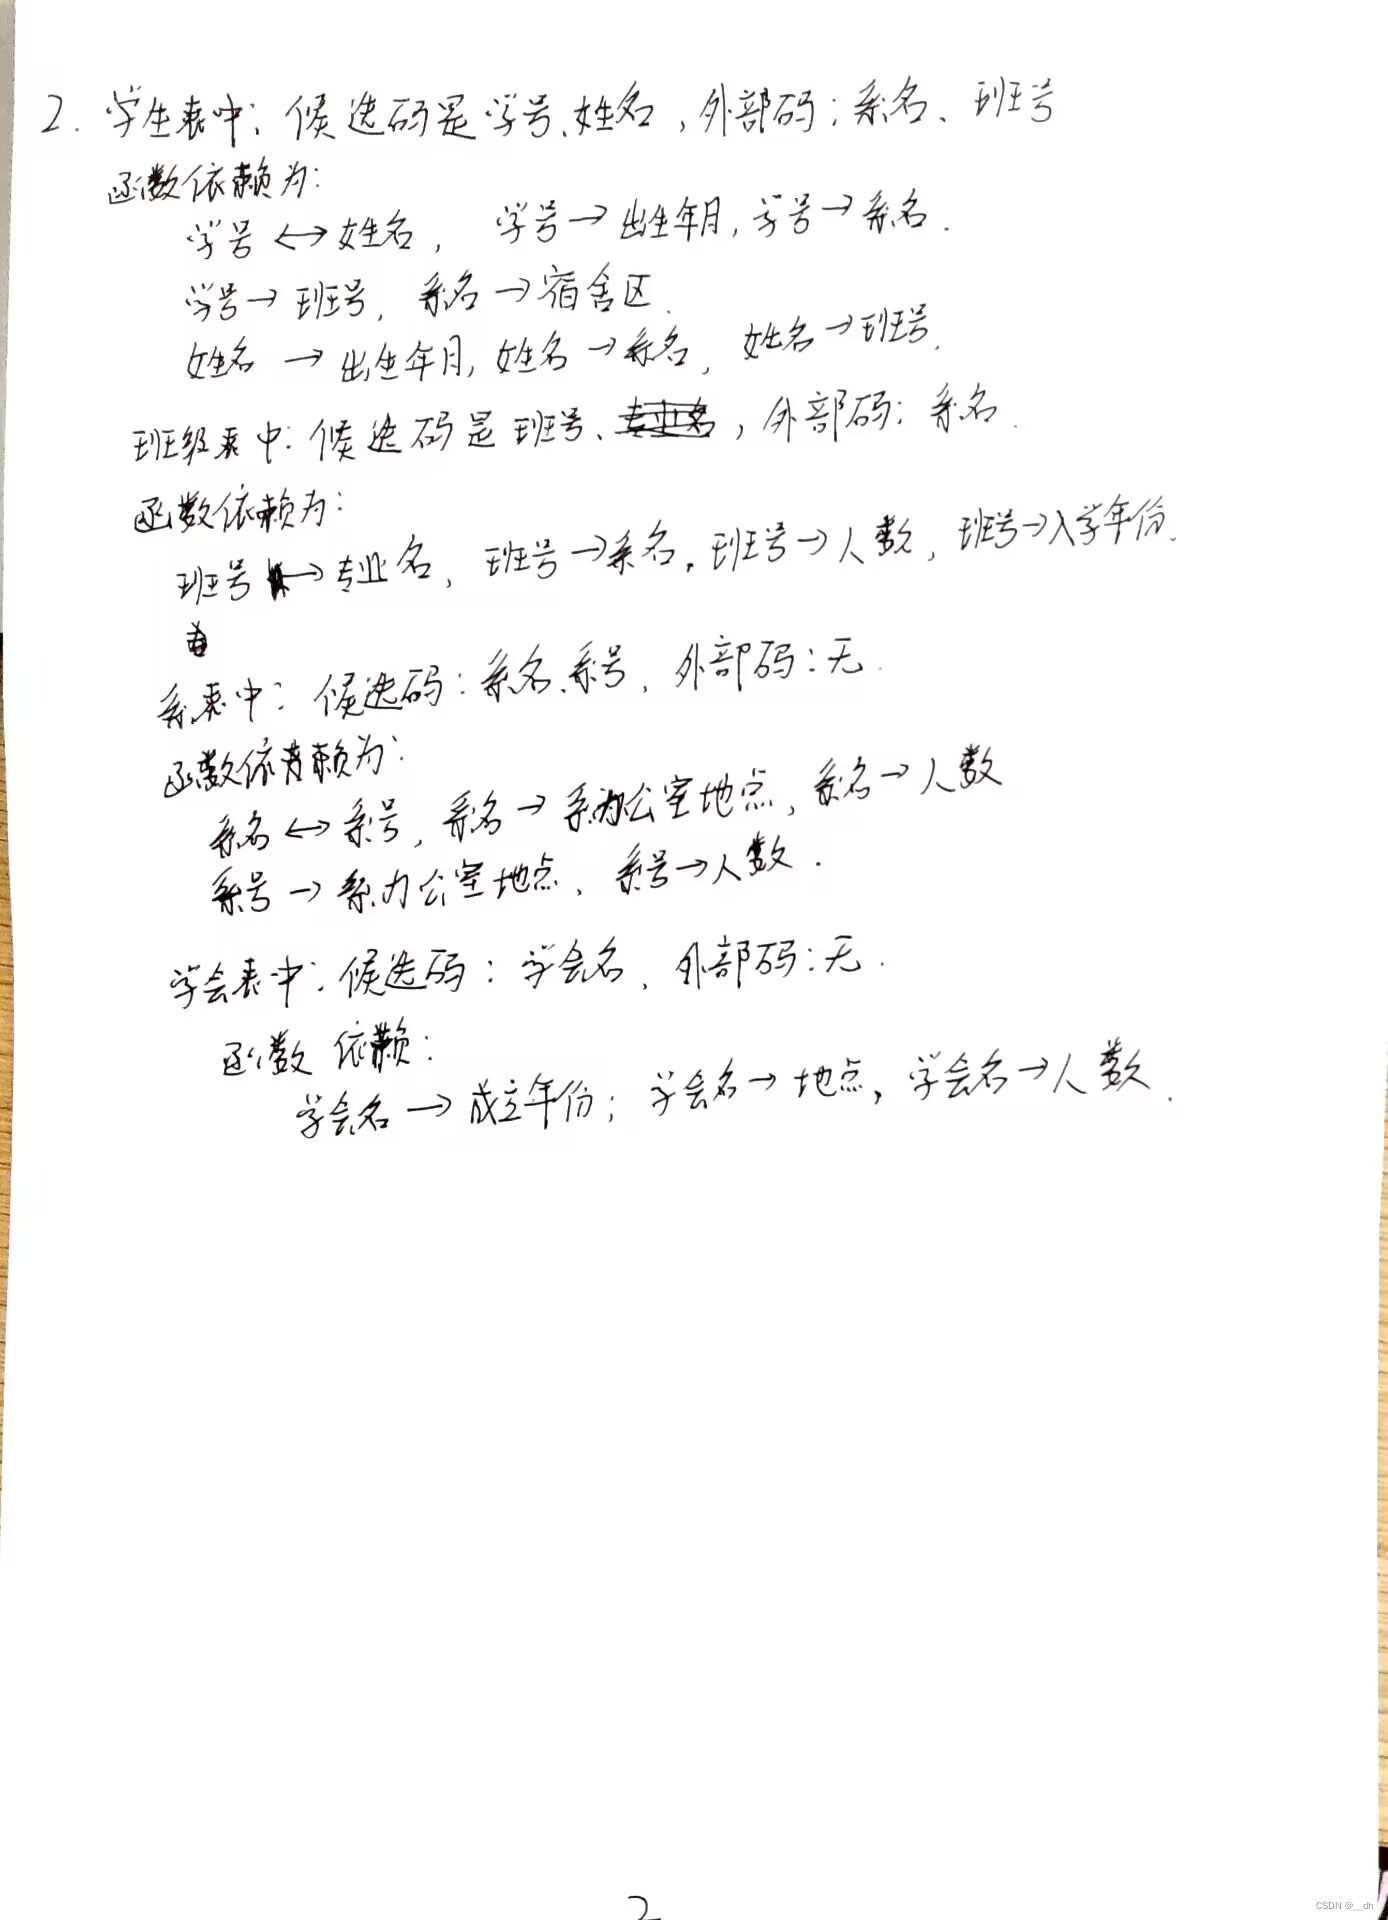 2. 学生表中：候选码是学号、姓名，外部码：系名、班号
函数依赖为：
学号↔姓名，学号→出生年月，学号→系名．
学号→班号，系名→宿舍区．
姓名→出生年月，姓名→系名，姓名→班号．
班级表中：候选码是班号、专业名，外部码：系名．
函数依赖为：
班号→专业名，班号→系名．班号→人数，班号→入学年份．
系表中：候选码：系名、系号，外部码：无．
函数依赖为：
系名↔系号，系名→系办公室地点，系名→人数
系号→系办公室地点，系号→人数．
学会表中：候选码：学会名，外部码：无．
函数依赖：
学会名→成立年份；学会名→地点，学会名→人数．
2
CSDN @__dh